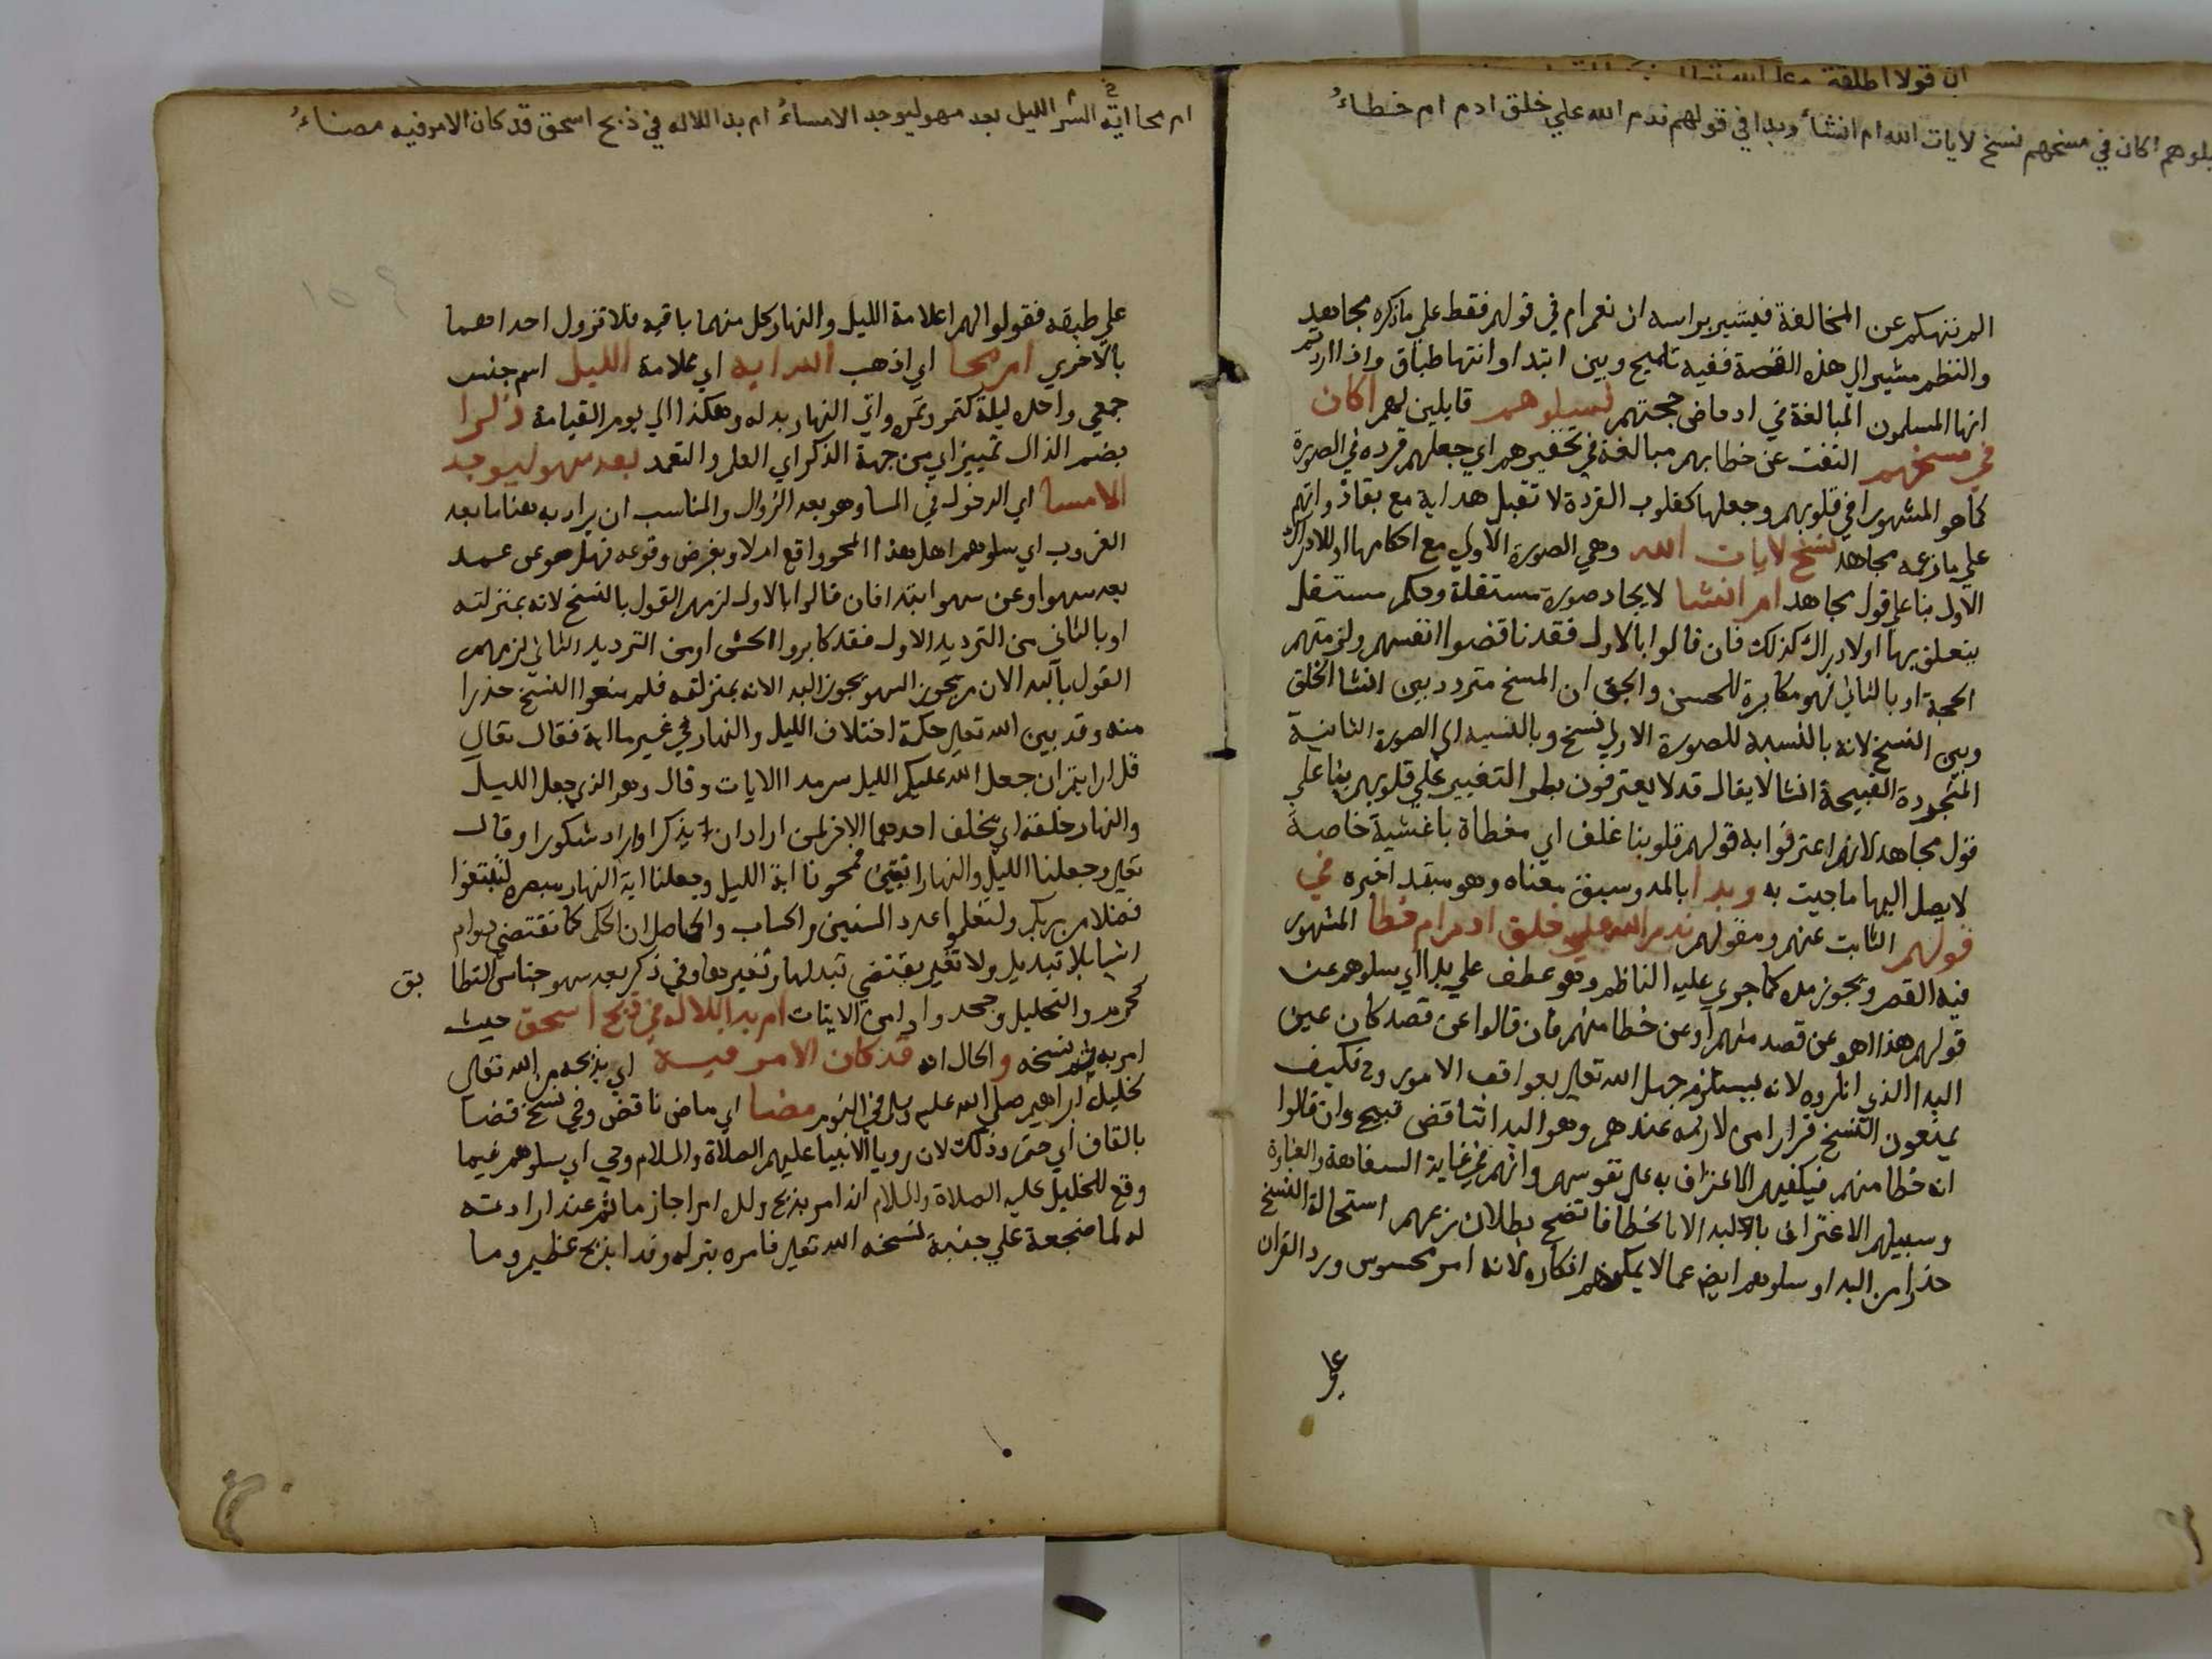 سلوهم اكان في مسخهم نسخ لايات الله ام انشاء وبدا في قولهم ندم الله علي خلق ادم ام خطاء
الم ننهكم عن المخالفة فيشير براسه ان نعم ام في قولهم فقط علي ما ذكره مجاهد
والنظم مشير الي هذه القصة ففيه تلميح وبين ابتدا وانتها طباق واذا اردتم
ايها المسلمون المبالغة في ادحاض حجتهم فسيلوهم قايلين لهم اكان
في مسخهم التفت عن خطابهم مبالغة في تحقيرهم اي جعلهم قردة في الصورة
كما هو المشهور او في قلوبهم وجعلها كقلوب القردة لا تقبل هداية مع بقاذواتهم
علي ما زعمه مجاهد نسخ لايات الله وهي الصورة الاولي مع احكامها او للادراك
الاول بنا علي قول مجاهد ام انشا لايجاد صورة مستقلة وحكم مستقل
يتعلق بها او لادراك كذلك فان قالوا بالاول فقد ناقضوا انفسهم ولزمتهم
الحجة او بالثاني فهو مكابرة للحس والحق ان المسخ متردد بين انشا الخلق
وبين النسخ لانه بالنسبة للصورة الاولي نسخ وبالنسبة الي الصورة الثانية
المتجددة القبيحة انشا لا يقال قد لا يعترفون بطر التغيير علي قلوبهم بنا علي
قول مجاهد لانهم اعترفوا به قولهم قلوبنا غلف اي مغطاة باغشية خاصة
لا يصل اليها ما جيت به وبدا بالمد وسبق معناه وهو مبتدا خبره في
قولهم الثابت عنهم ومقولهم ندم الله علي خلق ادم ام خطا المشهور
فيه القصر ويجوز مده كما جري عليه الناظم وهو عطف علي بدا اي سلوهم عن
قولهم هذا اهو عن قصد منهم او عن خطا منهم فان قالوا عن قصد كان عين
البدا الذي انكروه لانه يستلزم جهل الله تعالي بعواقب الامور وح فكيف
يمنعون النسخ فرارا من لازمه عندهم وهو البدا تناقض قبيح وان قالوا
انه خطا منهم فيكفيهم الاعتراف به علي نفوسهم وانهم في غاية السفاهة والغباوة
وسبيلهم الاعتراف بالبدا لا بالخطا فاتضح بطلان زعمهم استحالة النسخ
حذرا من البدا وسلوهم ايض عما لا يمكنهم انكاره لانه امر محسوس ورد القران
ام محا اية الليل بعد سهو ليوجد الامساء ام بدا للاله في ذبح اسحق قد كان الامر فيه مضاء
علي طبقه فقولوا لهم اعلامة الليل والنهار كل منهما باقية فلا تزول احداهما
بالاخري ام محا اي اذهب الله اية اي علامة الليل اسم جنس
جمعي واحده ليلة كتمر وتمرة واتي النهار بدله وهكذا الي يوم القيامة ذكرا
بضم الذال تمييز اي من جهة الذكر اي العلم والتعمد بعد سهو ليوجد
الامسا اي الدخول في المسا وهو بعد الزوال والمناسب ان يراد به هنا ما بعد
الغروب اي سلوهم اهل هذا المحو واقع ام لا وبفرض وقوعه فهل هو عن عمد
بعد سهو او عن سهو ابتدا فان قالوا بالاول لزمهم القول بالنسخ لانه بمنزلته
او بالثاني من الترديد الاول فقد كابروا الحس او من الترديد الثاني لزمهم
القول بالبدا لان من يجوز السهو يجوز البدا لانه بمنزلته فلم منعوا النسخ حذرا
منه وقد بين الله تعالي حكمة اختلاف الليل والنهار في غير ما اية فقال تعالي
قل ارايتم ان جعل الله عليكم الليل سرمدا الايات وقال وهو الذي جعل الليل
والنهار خلفة اي يخلف احدهما الاخر لمن اراد ان يذكر او اراد شكورا وقال
تعالي وجعلنا الليل والنهار ايتين فمحونا اية الليل وجعلنا اية النهار مبصرة لتبتغوا
فضلا من ربكم ولتعلموا عدد السنين والحساب والحاصل ان الحكم كما تقتضي دوام
اشيا بلا تبديل ولا تغير يقتضي تبدلها وتغيرها وفي ذكر بعد سهو جناس التطابق
كحرمة والتحليل وجحدوا وامن الايات ام بدا للاله في ذبح اسحق حيث
امر به ثم نسخه والحال انه قد كان الامر فيه اي بذبحه من الله تعالي
لخليل ابراهيم صلي الله عليه وسلم في النوم مضا اي ماض نافض وفي نسخ قضا
بالقاف اي حتم وذلك لان رويا الانبيا عليهم الصلاة والسلام وحي اي سلوهم فيما
وقع للخليل عليه الصلاة والسلام انه امر بذبح ولده امرا جازما ثم عند ارادته
له لما ضجعه علي جنبه نسخه الله تعالي فامره بتركه وفدا بذبح عظيم وما